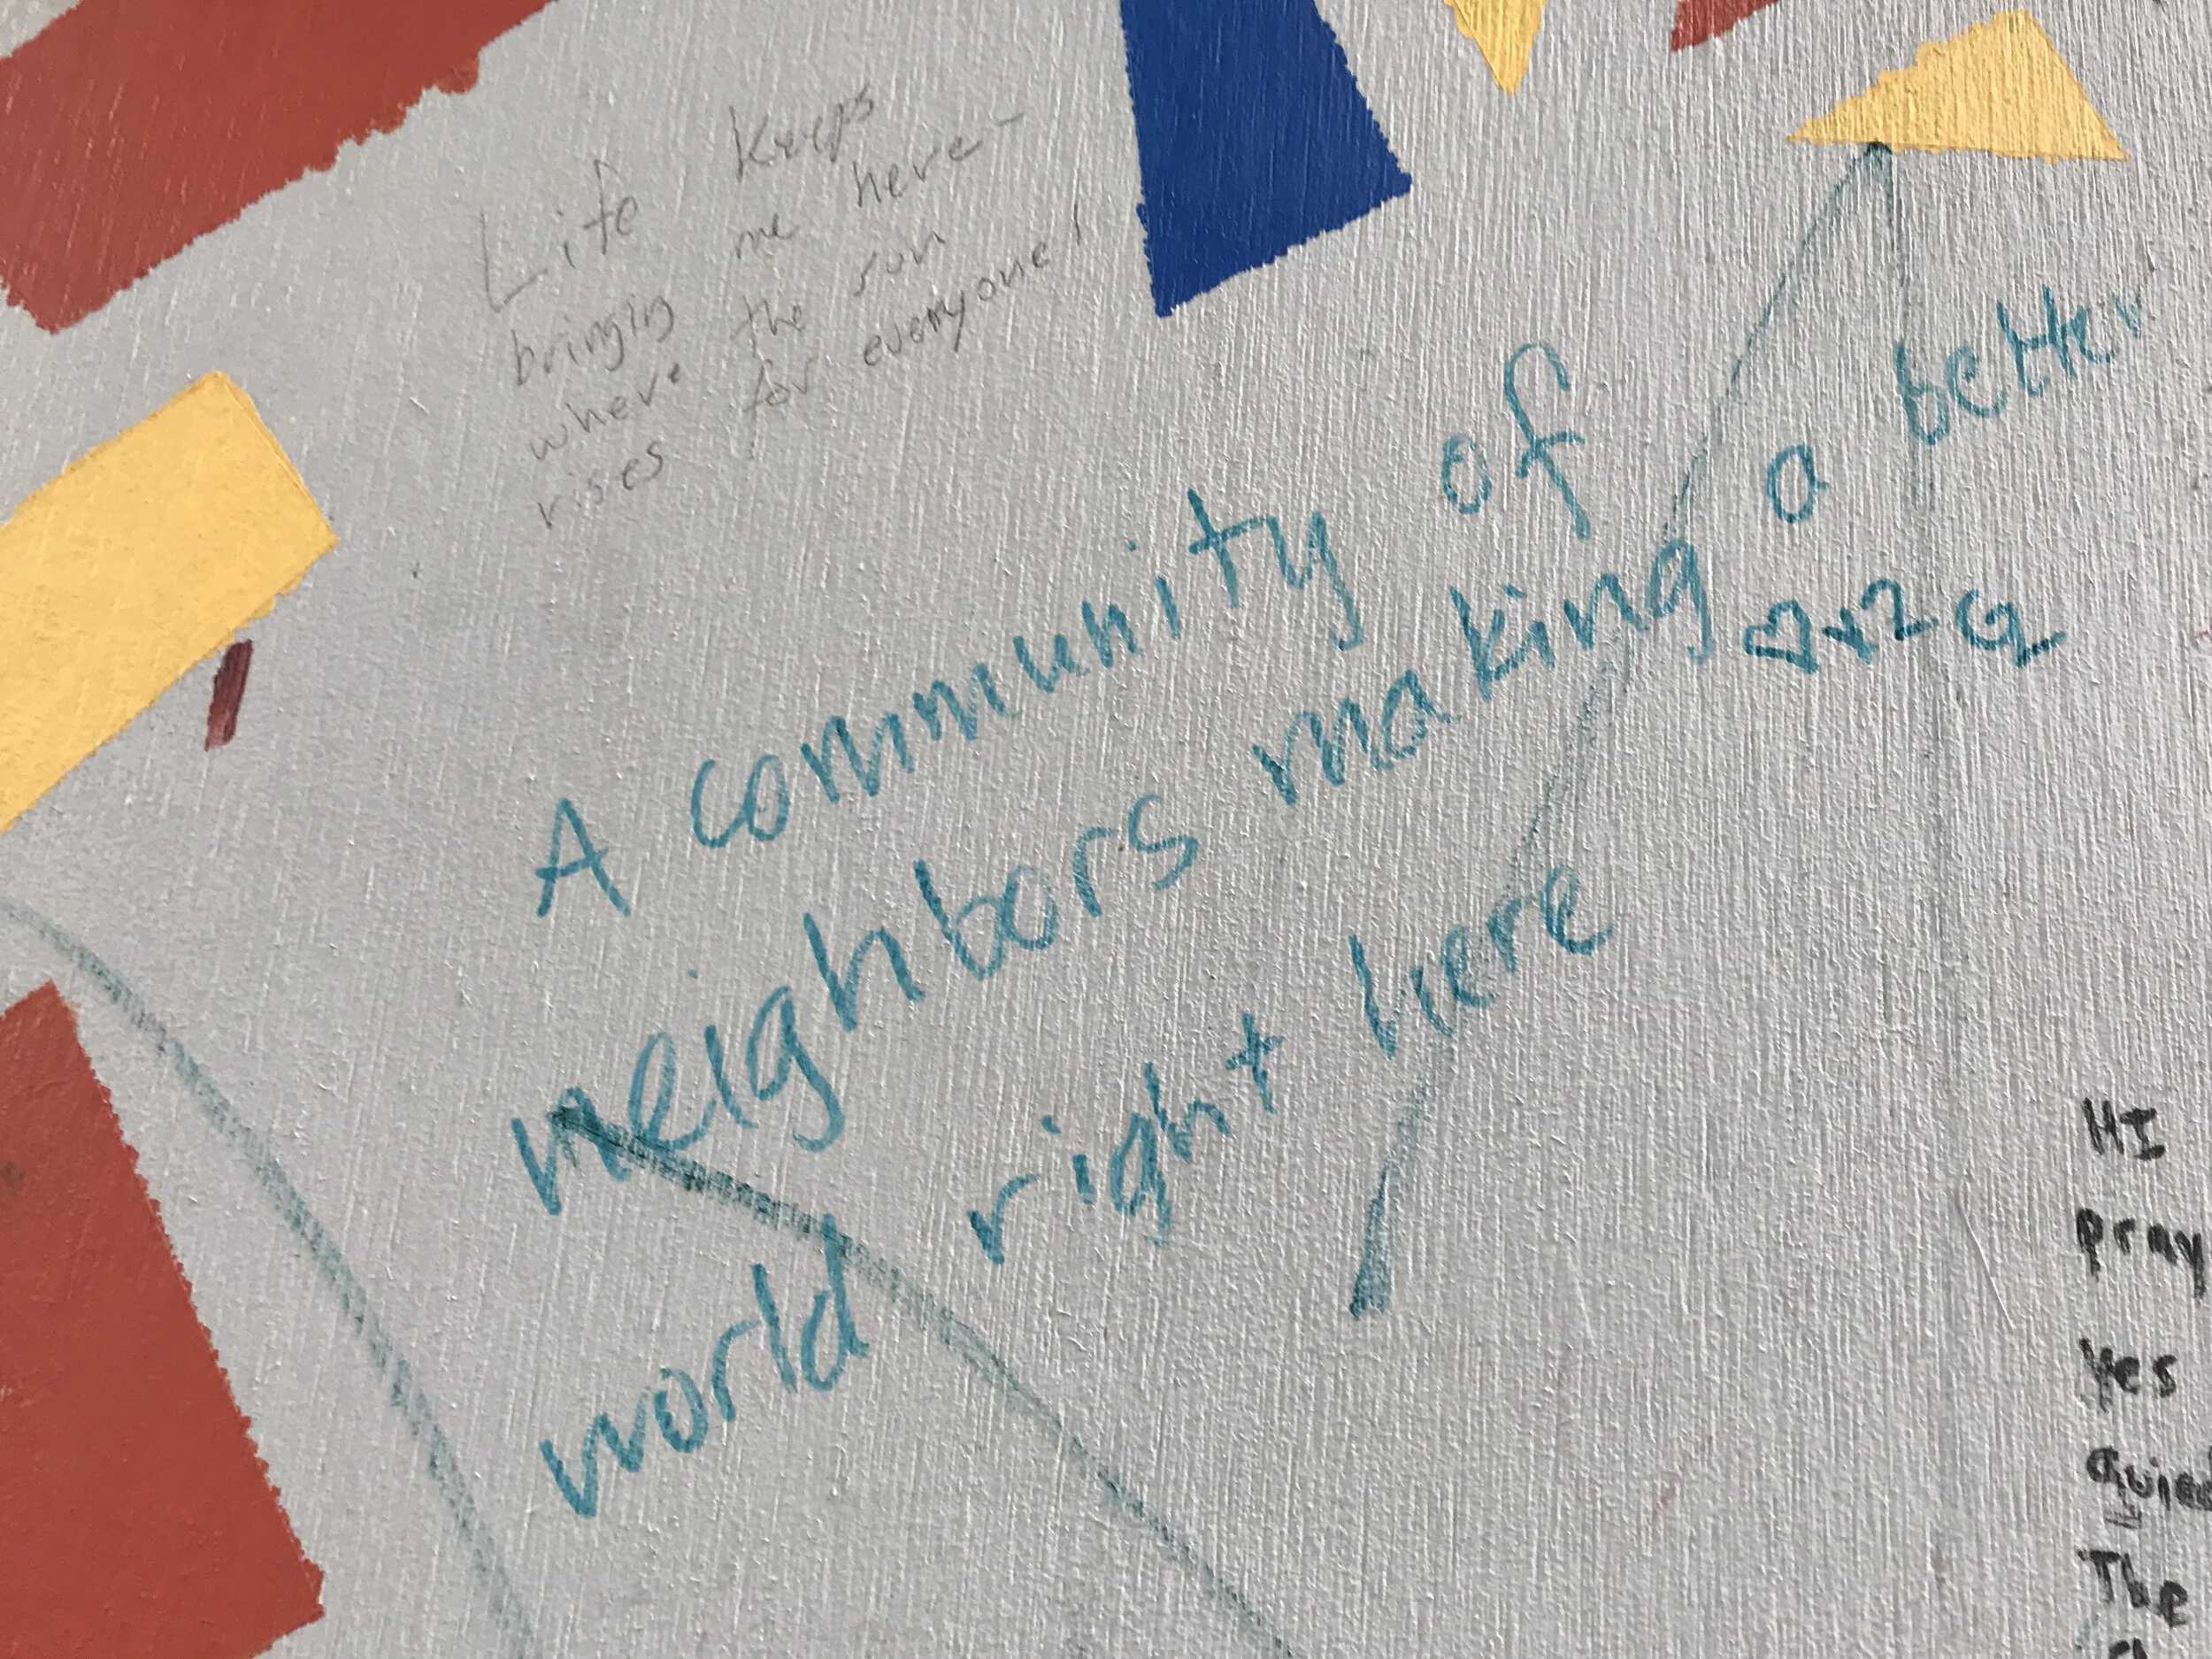 Life keeps
bringing me here-
where the sun
rises for everyone!
A community of
neighbors making a better
world right here
HI
pray
yes
The